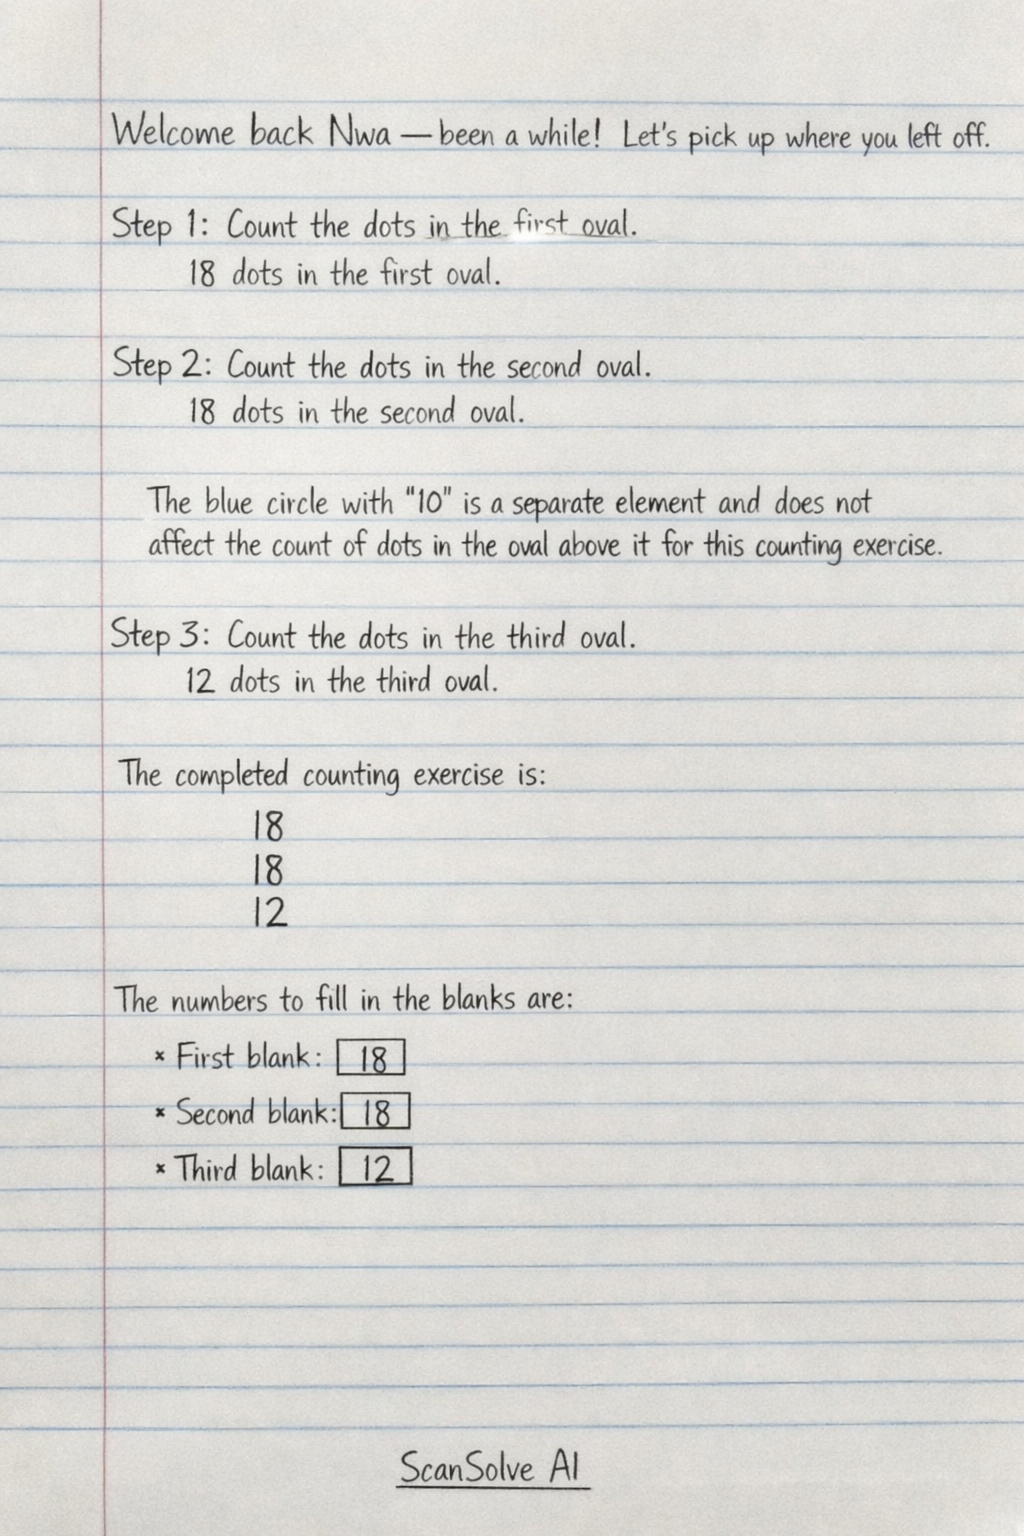 Welcome back Nwa — been a while! Let's pick up where you left off.
Step 1: Count the dots in the first oval.
18 dots in the first oval.
Step 2: Count the dots in the second oval.
18 dots in the second oval.
The blue circle with "10" is a separate element and does not
affect the count of dots in the oval above it for this counting exercise.
Step 3: Count the dots in the third oval.
12 dots in the third oval.
The completed counting exercise is:
18
18
12
The numbers to fill in the blanks are:
× First blank: 18
× Second blank: 18
× Third blank: 12
ScanSolve AI